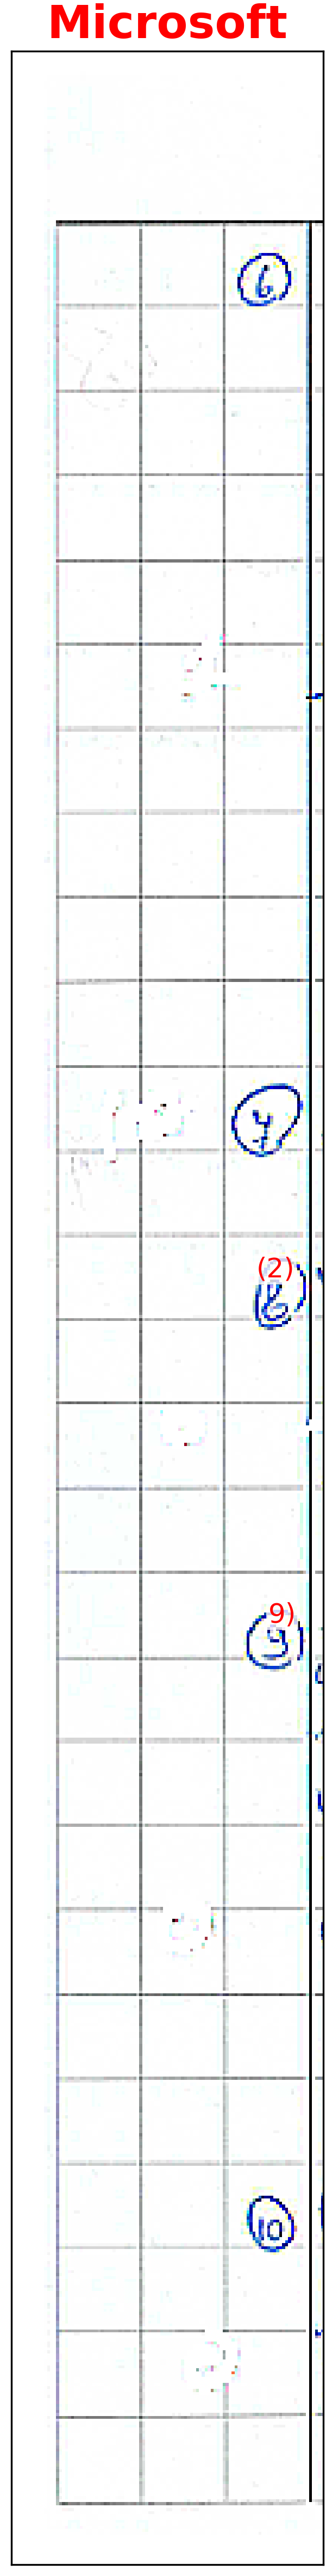 Microsoft
6
(2)
9)
10